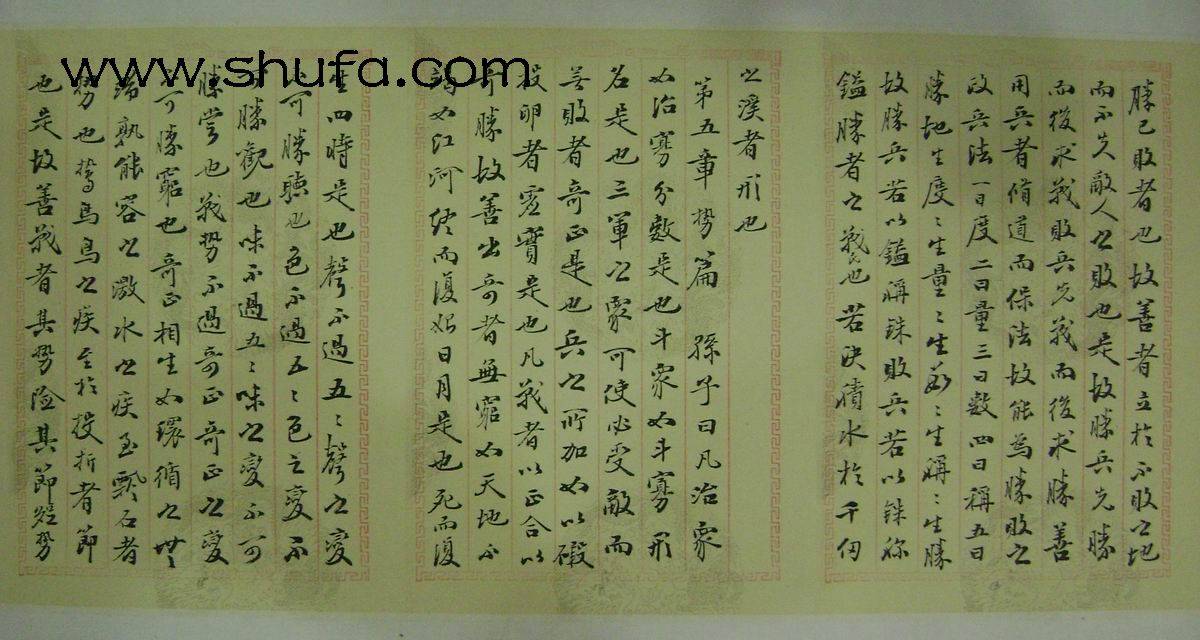 www.shufa.com
勝已敗者也故善者立於不敗之地
而不失敵人之敗也是故勝兵先勝
而後求戰敗兵先戰而後求勝善
用兵者脩道而保法故能為勝敗之
政兵法一曰度二曰量三曰數四曰稱五曰
勝地生度〻生量〻生數〻生稱〻生勝
故勝兵若以鎰稱銖敗兵若以銖称
鎰勝者之戰也若決積水於千仞
之溪者形也
第五章勢篇 孫子曰凡治衆
如治寡分數是也斗衆如斗寡形
名是也三軍之衆可使必受敵而
無敗者奇正是也兵之所加如以碫
投卵者虛實是也凡戰者以正合以
奇勝故善出奇者無窮如天地不
竭如江河終而復始日月是也死而復
生四時是也聲不過五〻聲之變
不可勝聽也色不過五〻色之變不
可勝觀也味不過五〻味之變不可
勝嘗也戰勢不過奇正奇正之變
不可勝窮也奇正相生如環循之無
端孰能容之激水之疾至飄石者
勢也鷙鳥之疾至於投折者節
也是故善戰者其勢险其節短勢